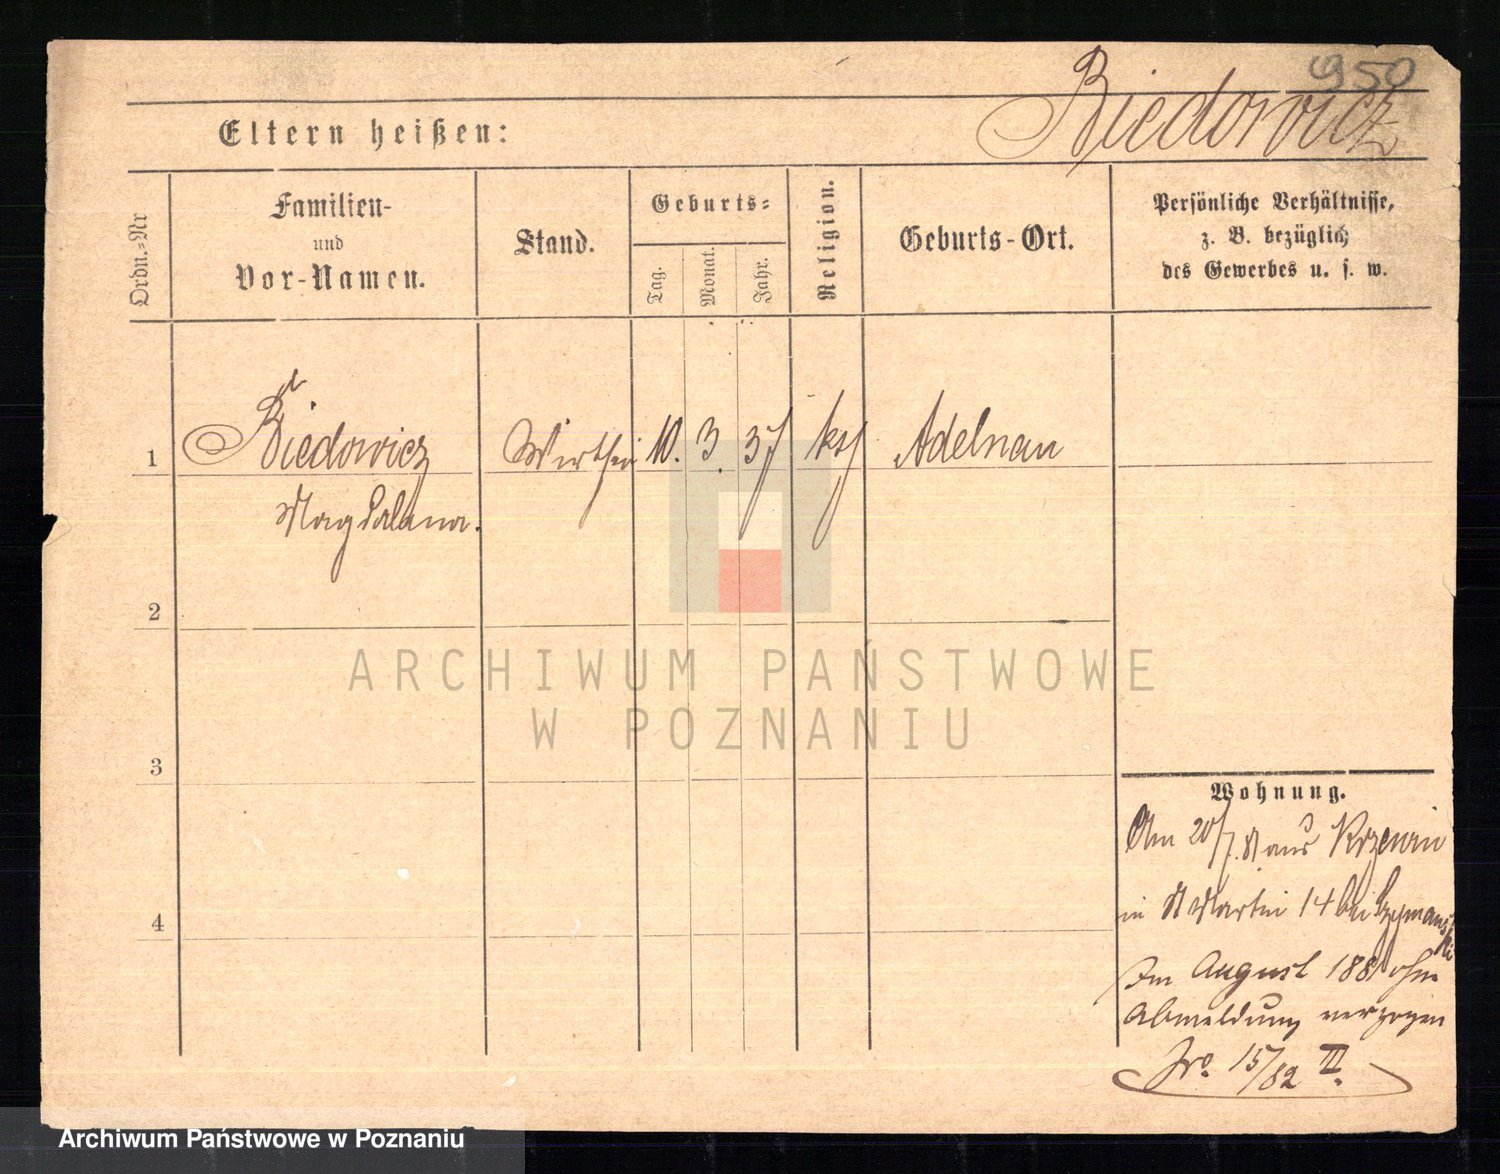 950
Biedowicz
Eltern heißen:
Ordn.-Nr
Familien-
und
Vor-Namen.
Stand.
Geburts-
Tag.
Monat.
Jahr.
Religion.
Geburts-Ort.
Persönliche Verhältnisse,
z. B. bezüglich
des Gewerbes u. s. w.
1
Biedowicz
Magdalena.
Wirthin
10.
3.
37
kth
Adelnau
2
3
4
Wohnung.
Am 20/7. 81 aus
in St Martin 14 bei Szymanski
Im August 1881 ohne
Abmeldung verzogen
15/82 III.
ARCHIWUM PAŃSTWOWE
W POZNANIU
Archiwum Państwowe w Poznaniu